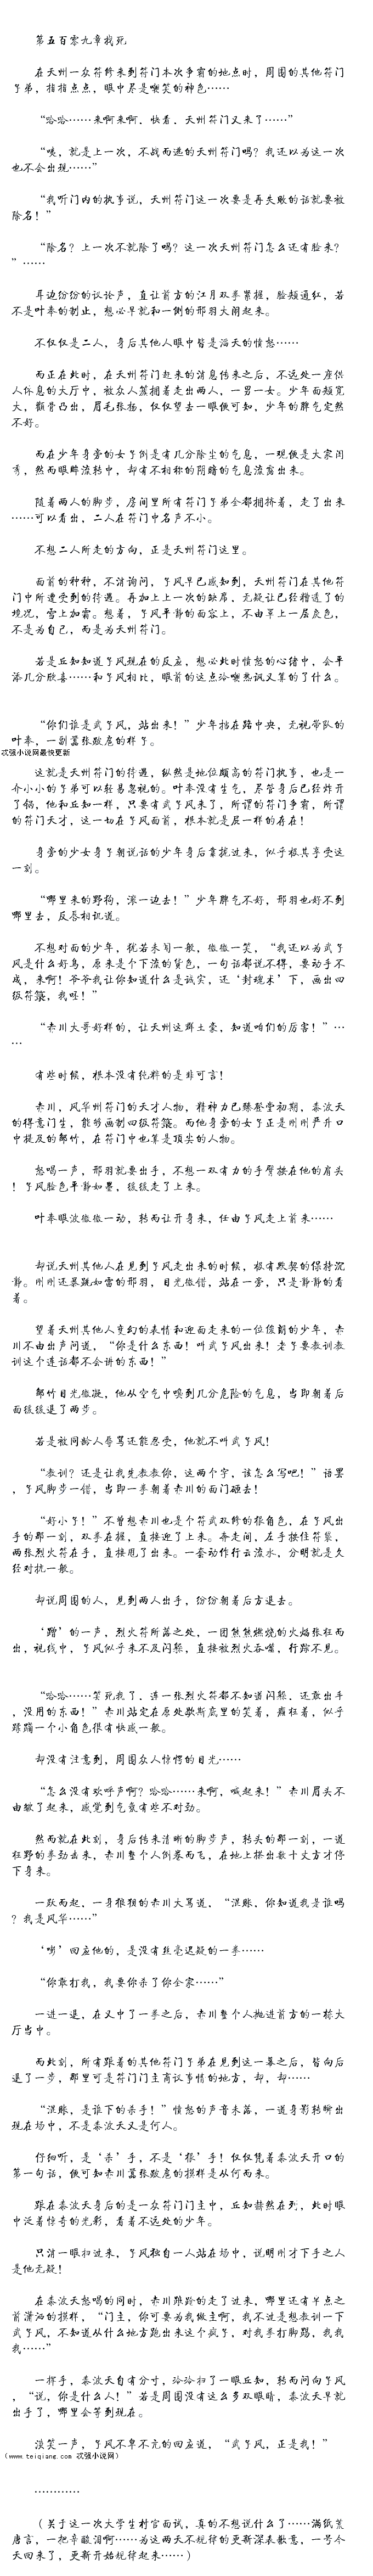 第五百零九章找死
在天州一众符修来到符门本次争霸的地点时，周围的其他符门
子弟，指指点点，眼中尽是嘲笑的神色……
“哈哈……来啊来啊，快看，天州符门又来了……”
“咦，就是上一次，不战而逃的天州符门吗？我还以为这一次
也不会出现……”
“我听门内的执事说，天州符门这一次要是再失败的话就要被
除名！”
“除名？上一次不就除了吗？这一次天州符门怎么还有脸来？
”……
耳边纷纷的议论声，直让前方的江月双拳紧握，脸颊通红，若
不是叶奉的制止，想必早就和一侧的邢羽大闹起来。
不仅仅是二人，身后其他人眼中皆是滔天的愤怒……
而正在此时，在天州符门赶来的消息传来之后，不远处一座供
人休息的大厅中，被众人簇拥着走出两人，一男一女。少年面颊宽
大，颧骨凸出，眉毛张扬，仅仅望去一眼便可知，少年的脾气定然
不好。
而在少年身旁的女子倒是有几分除尘的气息，一观便是大家闺
秀，然而眼眸流转中，却有不相称的阴暗的气息流露出来。
随着两人的脚步，房间里所有符门子弟全都拥挤着，走了出来
……可以看出，二人在符门中名声不小。
不想二人所走的方向，正是天州符门这里。
面前的种种，不消询问，子风早已感知到，天州符门在其他符
门中所遭受到的待遇。再加上上一次的缺席，无疑让已经糟透了的
境况，雪上加霜。想着，子风平静的面容上，不由罩上一层灰色，
不是为自己，而是为天州符门。
若是丘知知道子风现在的反应，想必此时愤怒的心绪中，会平
添几分欣喜……和子风相比，眼前的这点冷嘲热讽又算的了什么。
“你们谁是武子风，站出来！”少年挡在路中央，无视带队的
叶奉，一副嚣张跋扈的样子。
忒强小说网最快更新
这就是天州符门的待遇，纵然是地位颇高的符门执事，也是一
介小小的子弟可以轻易忽视的。叶奉没有生气，尽管身后已经炸开
了锅，他和丘知一样，只要有武子风来了，所谓的符门争霸，所谓
的符门天才，这一切在子风面前，根本就是屁一样的存在！
身旁的少女身子朝说话的少年身后靠拢过来，似乎极其享受这
一刻。
“哪里来的野狗，滚一边去！”少年脾气不好，邢羽也好不到
哪里去，反唇相讥道。
不想对面的少年，犹若未闻一般，微微一笑，“我还以为武子
风是什么好鸟，原来是个下流的货色，一句话都说不得，要动手不
成，来啊！爷爷我让你知道什么是诚实，还‘封魂术’下，画出四
级符箓，我呸！”
“赤川大哥好样的，让天州这群土豪，知道咱们的厉害！”…
…
有些时候，根本没有纯粹的是非可言！
赤川，风华州符门的天才人物，精神力已臻登堂初期，秦波天
的得意门生，能够画制四级符箓。而他身旁的女子正是刚刚严升口
中提及的郁竹，在符门中也算是顶尖的人物。
怒喝一声，邢羽就要出手，不想一双有力的手臂按在他的肩头
！子风脸色平静如墨，缓缓走了上来。
叶奉眼波微微一动，转而让开身来，任由子风走上前来……
却说天州其他人在见到子风走出来的时候，极有默契的保持沉
静。刚刚还暴跳如雷的邢羽，目光微错，站在一旁，只是静静的看
着。
望着天州其他人变幻的表情和迎面走来的一位俊爵的少年，赤
川不由出声问道，“你是什么东西！叫武子风出来！老子要教训教
训这个连话都不会讲的东西！”
郁竹目光微凝，他从空气中嗅到几分危险的气息，当即朝着后
面缓缓退了两步。
若是被同龄人辱骂还能忍受，他就不叫武子风！
“教训？还是让我先教教你，这两个字，该怎么写吧！”语罢
，子风脚步一错，当即一拳朝着赤川的面门砸去！
“好小子！”不曾想赤川也是个符武双修的狠角色，在子风出
手的那一刻，双拳在握，直接迎了上来。奔走间，左手按住符箓，
两张烈火符在手，直接甩了出来。一套动作行云流水，分明就是久
经对抗一般。
却说周围的人，见到两人出手，纷纷朝着后方退去。
‘蹭’的一声，烈火符所落之处，一团熊熊燃烧的火焰张狂而
出，视线中，子风似乎来不及闪躲，直接被烈火吞噬，行踪不见。
“哈哈……笑死我了，连一张烈火符都不知道闪躲，还敢出手
，没用的东西！”赤川站定在原处歇斯底里的笑着，癫狂着，似乎
蹂躏一个小角色很有快感一般。
却没有注意到，周围众人惊愕的目光……
“怎么没有欢呼声啊？哈哈……来啊，喊起来！”赤川眉头不
由皱了起来，感觉到气氛有些不对劲。
然而就在此刻，身后传来清晰的脚步声，转头的那一刻，一道
狂野的拳劲击来，赤川整个人倒卷而飞，在地上搓出数十丈方才停
下身来。
一跃而起，一身狼狈的赤川大骂道，“混账，你知道我是谁吗
？我是风华……”
‘嘭’回应他的，是没有丝毫迟疑的一拳……
“你敢打我，我要你杀了你全家……”
一进一退，在又中了一拳之后，赤川整个人抛进前方的一栋大
厅当中。
而此刻，所有跟着的其他符门子弟在见到这一幕之后，皆向后
退了一步，那里可是符门门主商议事情的地方，却，却……
“混账，是谁下的杀手！”愤怒的声音未落，一道身影转瞬出
现在场中，不是秦波天又是何人。
仔细听，是‘杀’手，不是‘狠’手！仅仅凭着秦波天开口的
第一句话，便可知赤川嚣张跋扈的模样是从何而来。
跟在秦波天身后的是一众符门门主中，丘知赫然在列，此时眼
中泛着惊奇的光彩，看着不远处的少年。
只消一眼扫过来，子风独自一人站在场中，说明刚才下手之人
是他无疑！
在秦波天怒喝的同时，赤川踉跄的走了过来，哪里还有半点之
前潇洒的模样，“门主，你可要为我做主啊，我不过是想教训一下
武子风，不知道从什么地方跑出来这个疯子，对我拳打脚踢，我我
我……”
一挥手，秦波天自有分寸，冷冷扫了一眼丘知，转而问向子风
，“说，你是什么人！”若是周围没有这么多双眼睛，秦波天早就
出手了，哪里会等到现在。
淡笑一声，子风不卑不亢的回应道，“武子风，正是我！”
（www.teiqiang.com 忒强小说网）
…………
（关于这一次大学生村官面试，真的不想说什么了……满纸荒
唐言，一把辛酸泪啊……为这两天不规律的更新深表歉意，一号今
天回来了，更新开始规律起来……）